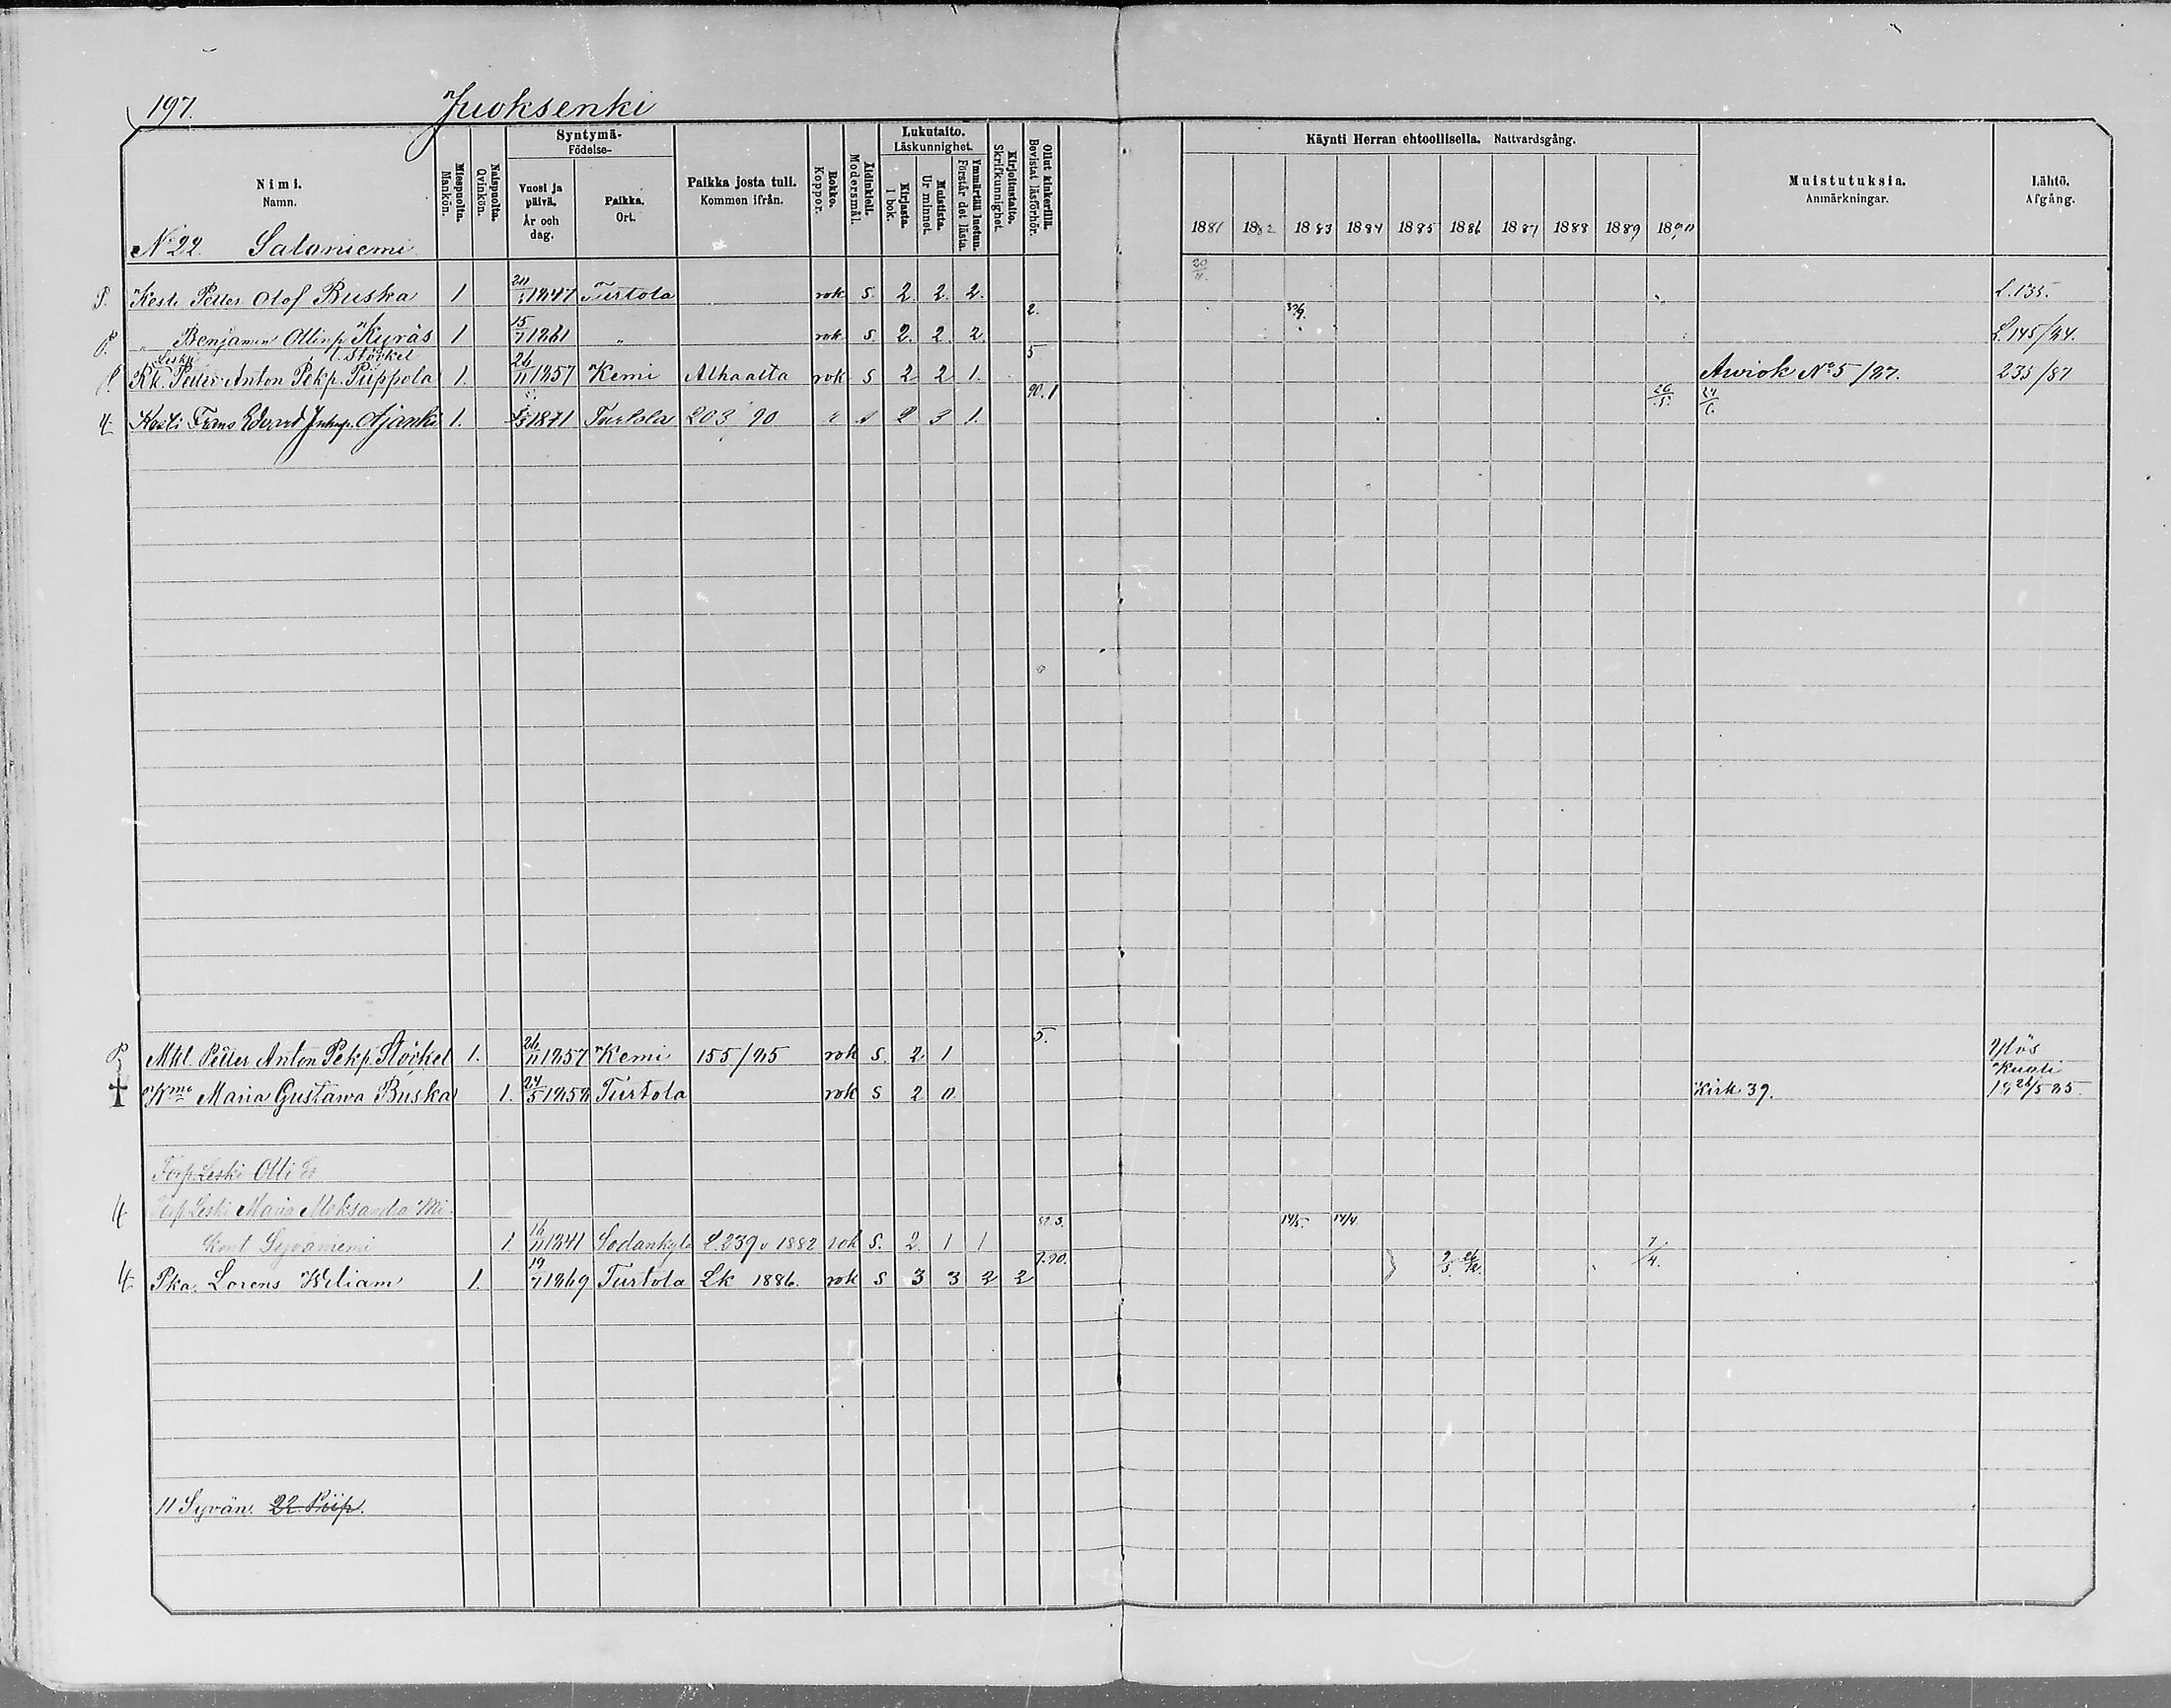 197. Juoksenki
Nimi. Namn.
Miespuolta. Mankön.
Naispuolta. Qvinkön.
Syntymä- Födelse-
Vuosi ja päivä. År och dag.
Paikka. Ort.
Paikka josta tuli. Kommen ifrån.
Rokko. Koppor.
Äidinkieli. Modersmål.
Lukutaito. Läskunnighet.
Kirjasta. I bok.
Muistista. Ur minnet.
Ymmärtää luetun. Förstår det lästa.
Kirjoitustaito. Skrifkunnighet.
Ollut kinkerillä. Bevistat läsförhör.
Käynti Herran ehtoollisella. Nattvardsgång.
1881 1882 1883 1884 1885 1886 1887 1888 1889 1890
Muistutuksia. Anmärkningar.
Lähtö. Afgång.
No 22. Saloniemi
P. Kesti Petter Olof Buska 1 1847 Turtola rok s. 2. 2. 2. L. 135.
P. " Benjamin Ollinp. Kyräs 1 15/7 1861 " rok s 2. 2. 2 L. 145/84.
Leski Störkel
Rk. Petter Anton Pekp. Piippola 1. 26/11 1857 Kemi Alhaalta rok s 2 2 1. Awiok No 5/87. 235/87
4 Kesti Frans Edvard Ajanki 1. 1871 Turtola 203 90 2 3 1.
P Mkl. Petter Anton Pekp. Störkel 1. 26/11 1857 Kemi 155/85 rok s. 2 1 Ylös
Kuoli
† Wmo Maria Gustawa Buska 1. 24/5 1858 Turtola rok s 2 0 Kirk 39. 18 26/5 85.
Torp. Leski Olli
4 Leski Maria Aleksandra Mi-
kont Syväniemi 1. 16/11 1841 Sodankylä L. 239 v 1882 rok s. 2 1 1
4 Pka. Lorens Wiliam 1. 19/7 1869 Turtola Lk 1886. rok s 3 3 2 2
11 Syvän. 22 Piip.